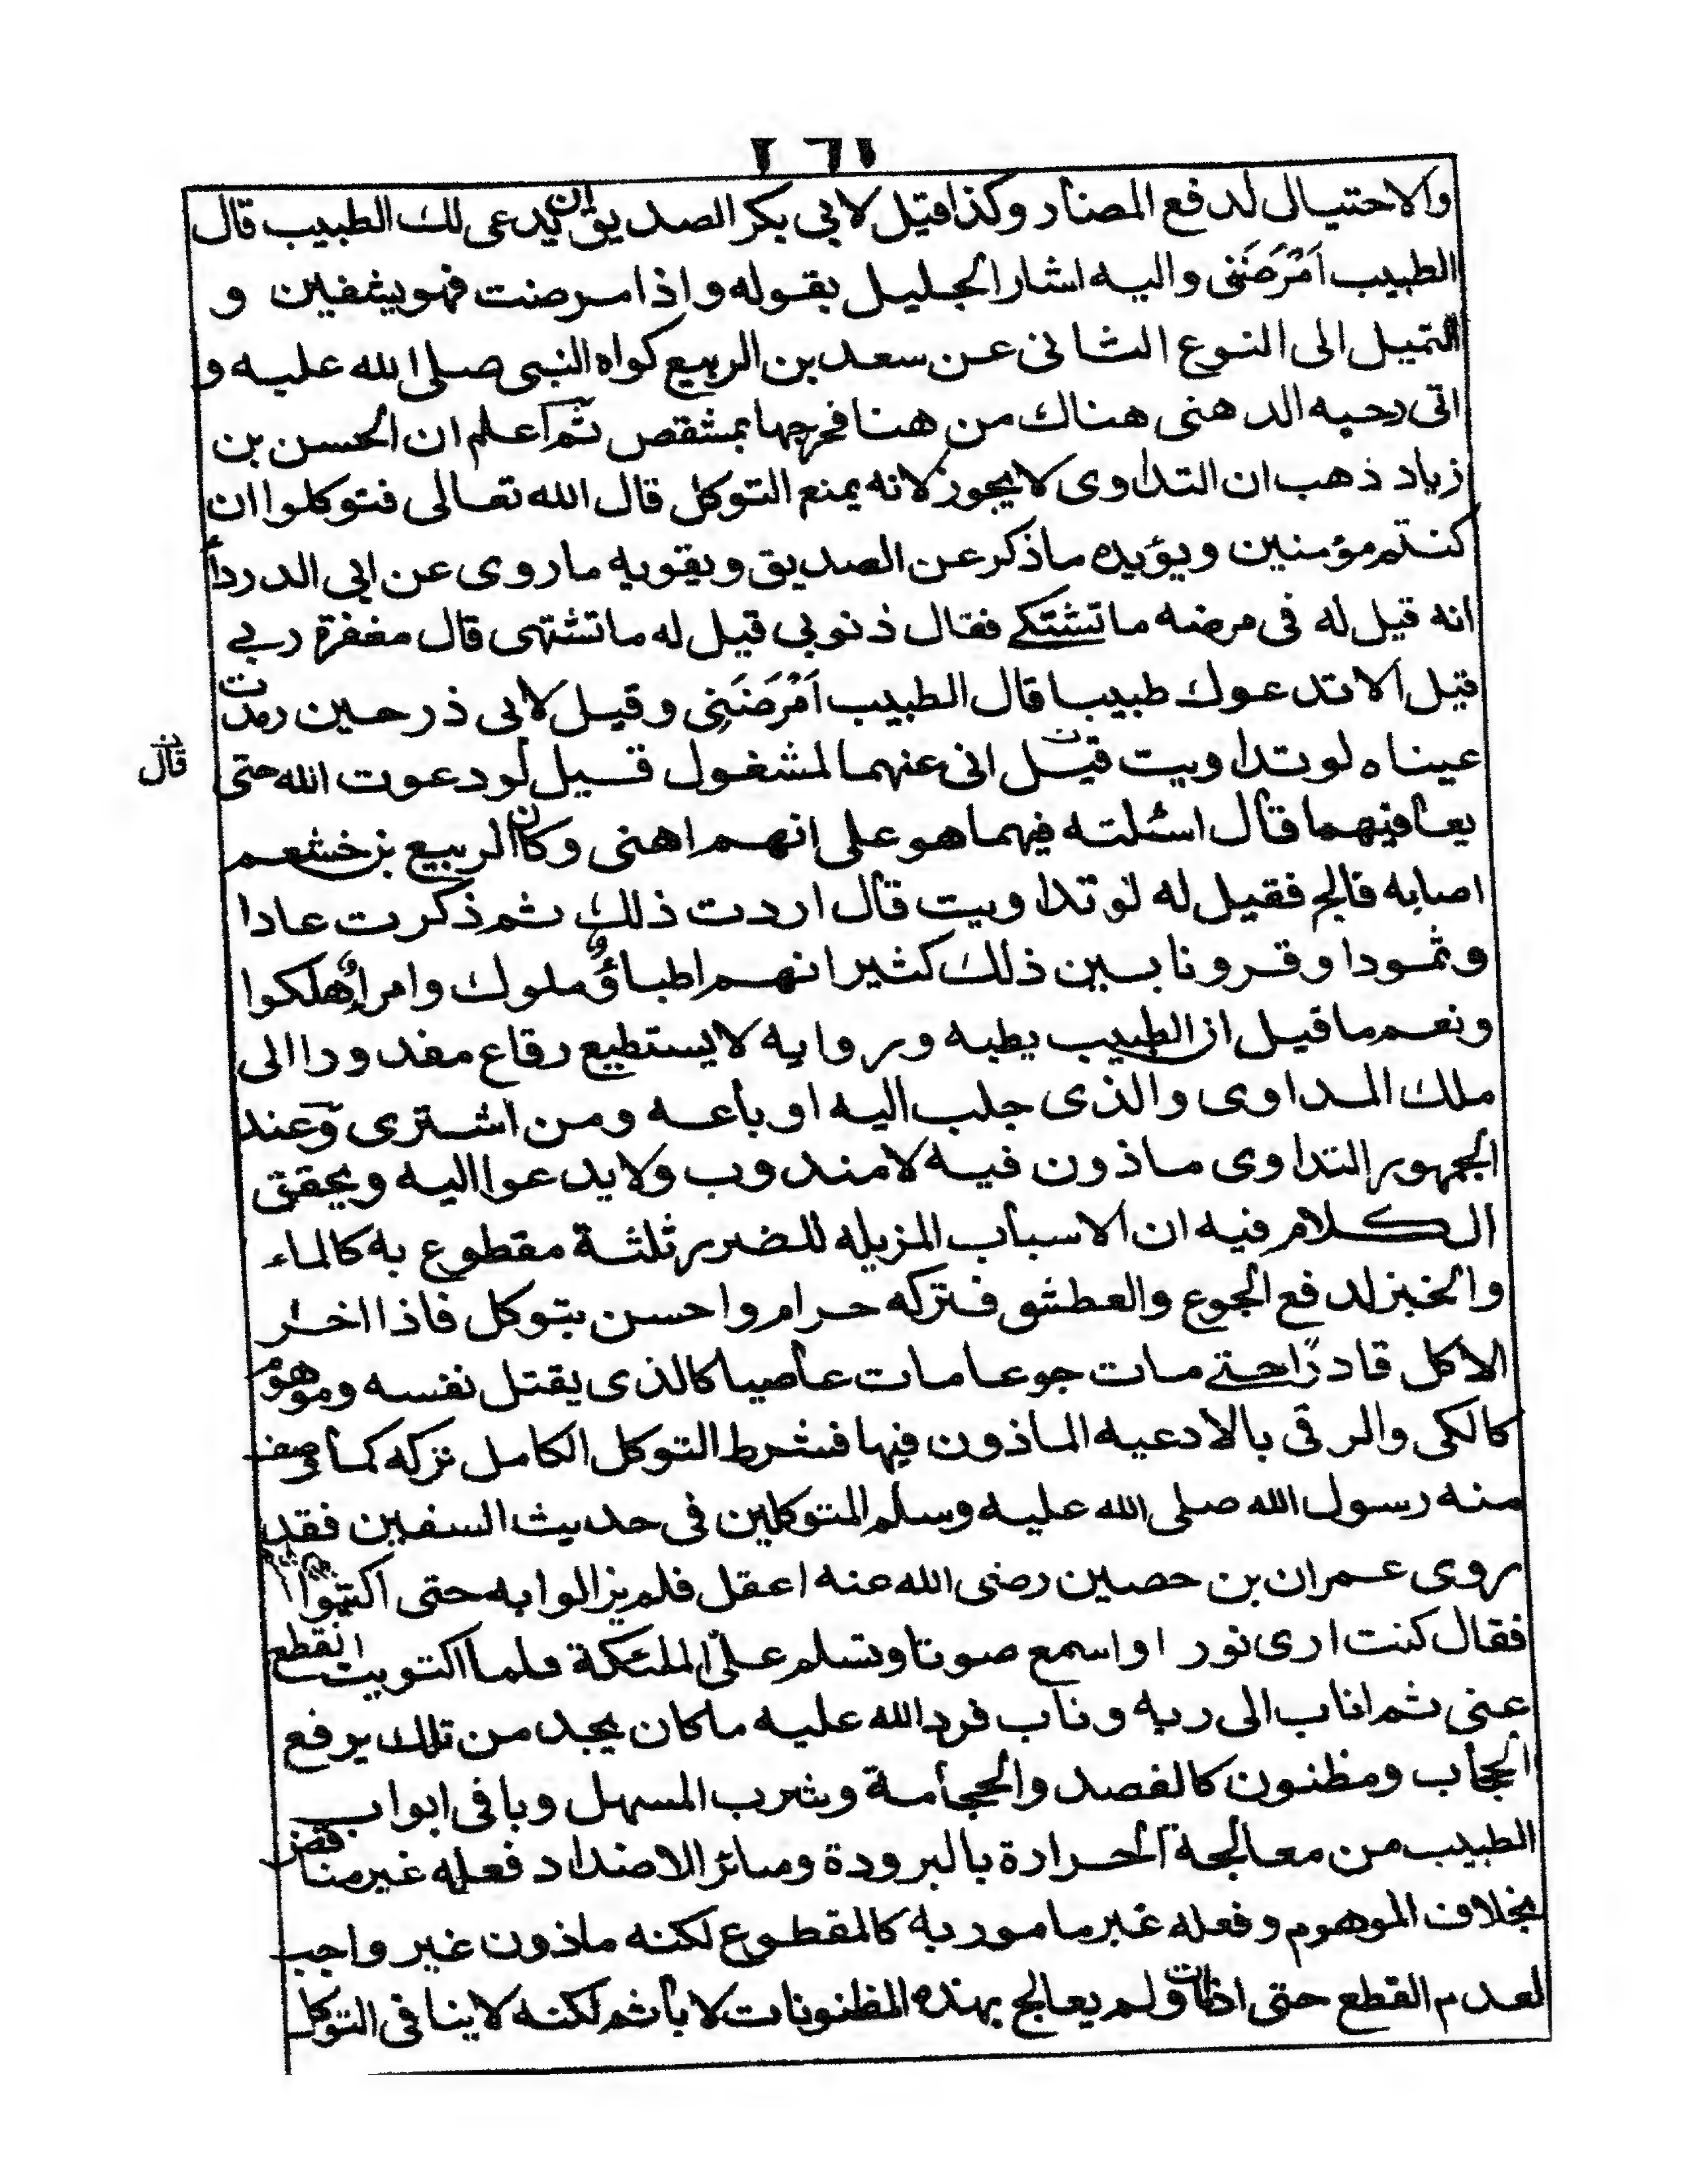 ١٦١
والاحتيال لدفع المضار وكذا قيل لابي بكر الصديق ان يدعى لك الطبيب قال
الطبيب اَمْرَضَنِى واليه اشار الجليل بقوله واذا مرضت فهو يشفين و
التميل الى النوع الثانى عن سعد بن الربيع كواه النبى صلى الله عليه و
اتى رحبه الدهنى هناك من هنا بمشقص ثم اعلم ان الحسن بن
زياد ذهب ان التداوى لا يجوز لانه يمنع التوكل قال الله تعالى فتوكلوا ان
كنتم مؤمنين ويؤيده ما ذكر عن الصديق ويقويه ما روى عن ابى الدردأ
انه قيل له فى مرضه ما تشتكے فقال ذنوبي قيل له ما تشتهى قال مغفرة ربے
قيل الا ندعوك طبيبا قال الطبيب اَمْرَضَنِى وقيل لابى ذر حين رمدت
عيناه لو تداويت قيل انى عنهما لمشغول قيل لو دعوت الله حتى
قال
يعافيهما قال اسئلته فيما هو على انهم اهنى وكان الربيع بن خشعم
اصابه فالج فقيل له لو تداويت قال اردت ذلك ثم ذكرت عادا
وثمودا وقرونا بين ذلك كثيرا انهم اطباؤ ملوك وامراؤ هلكوا
ونعم ما قيل ان الطبيب يطبه وروايه لا يستطيع رقاع مفدورا الى
ملك المداوى والذى جلب اليه او باعه ومن اشترى وعند
الجمهور التداوى ماذون فيه لا مندوب ولا يدعوا اليه ويحقق
الكلام فيه ان الاسباب المزيله للضرر ثلثة مقطوع به كالماء
والخبز لدفع الجوع والعطش فتركه حرام واحسن بتوكل فاذا اختار
الاكل قادرًا حتے مات جوعا مات عاصيا كالذى يقتل نفسه وموهوم
كالكى والرقى بالادعيه الماذون فيها فشرط التوكل الكامل تركه كما
منه رسول الله صلى الله عليه وسلم المتوكلين فى حديث السفين فقد
روى عمران بن حصين رضى الله عنه اعقل فلم يزالوا به حتى
فقال كنت ارى نور او اسمع صوتا وتسلم على الملئكة فلما اكتويت انقطع
عنى ثم اناب الى ربه وناب فرد الله عليه ما كان يجد من تلك يرفع
الحجاب ومظنون كالفصد والحجامة وشرب المسهل وباقى ابواب
الطبيب من معالجة الحرارة بالبرودة وسائر الاضداد فعله غير مناقض
بخلاف الموهوم وفعله غير مامور به كالمقطوع لكنه ماذون غير واجب
لعدم القطع حتى اذا مات ولم يعالج بهذه المظنونات لا يأثم لكنه لا ينافى التوكل